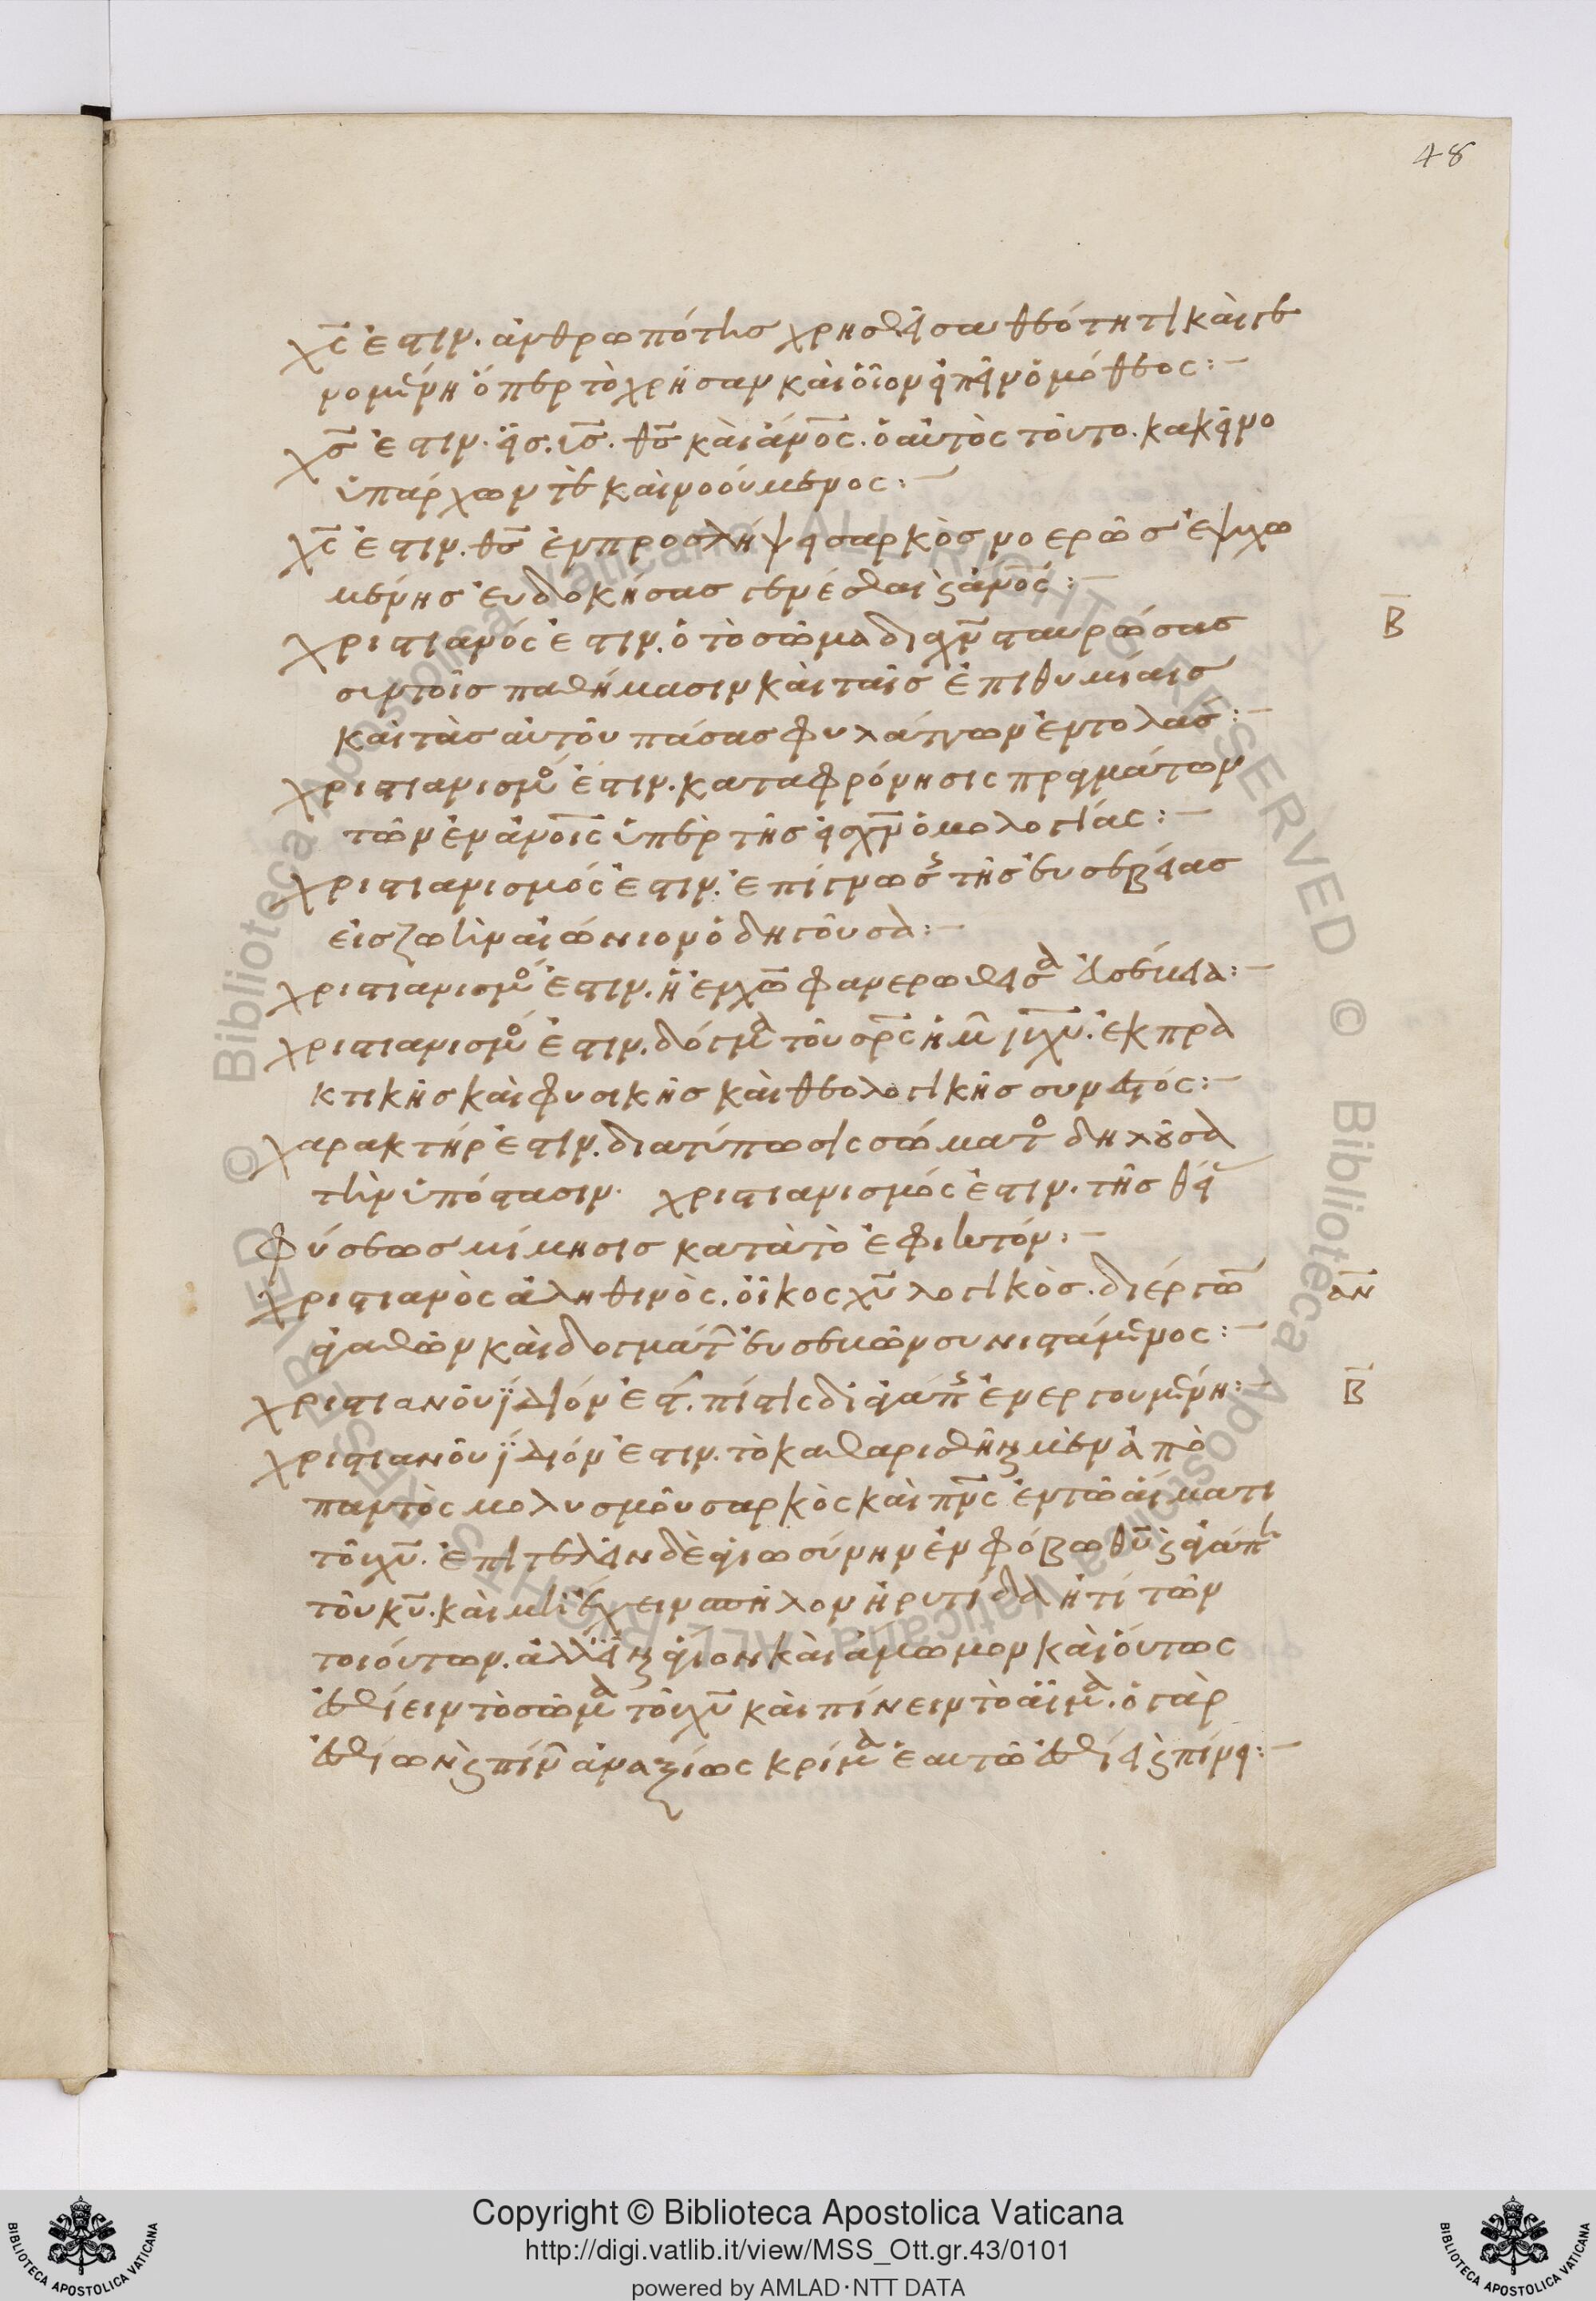 48
χ̅ς̅ ἐστιν. ἀνθρωπότης χρησθεῖσα θεότητι καὶ γε
νομένη ὅπερ τὸ χρῆσαν καὶ οἷον εἰπεῖν ὁμόθεος:—
χ̅ς̅ ἐστιν. εἷς. υ̅ς̅. θ̅ς̅ καὶ α̅ν̅ο̅ς̅. ὁ αὐτὸς τοῦτο. κακεῖνο
ὑπάρχων τε καὶ νοούμενος:—
χ̅ς̅ ἐστιν. θ̅ς̅ ἐν προσλήψει σαρκὸς νοερῶς ἐψυχω
μένης εὐδοκήσας γενέσθαι ϗ α̅ν̅ο̅ς̅:—
χριστιανός ἐστιν. ὁ τὸ σῶμα διὰ χ̅ν̅ σταυρώσας
σὺν τοῖς παθήμασιν καὶ ταῖς ἐπιθυμίαις
καὶ τὰς αὐτοῦ πάσας φυλάττων ἐντολάς:—
Β̅
χριστιανισμός ἐστιν. καταφρόνησις πραγμάτων
τῶν ἐν α̅ν̅ο̅ι̅ς̅ ὑπὲρ τῆς εἰς χ̅ν̅ ὁμολογίας:—
χριστιανισμός ἐστιν. ἐπίγνωσις τῆς εὐσεβείας
εἰς ζωὴν αἰώνιον ὁδηγοῦσα:—
χριστιανισμός ἐστιν. ἡ ἐν χ̅ω̅ φανερωθεῖσα εὐσέβεια:—
χριστιανισμός ἐστιν. δόγμα τοῦ σ̅ρ̅ς̅ ἡμῶν ι̅υ̅ χ̅υ̅. ἐκ πρα
κτικῆς καὶ φυσικῆς καὶ θεολογικῆς συνεστός:—
χαρακτήρ ἐστιν. διατύπωσις σώματος δηλοῦσα
τὴν ὑπόστασιν. χριστιανισμός ἐστιν. τῆς θείας
φύσεως μίμησις κατὰ τὸ ἐφικτόν:—
χριστιανὸς ἀληθινὸς. οἶκος χ̅υ̅ λογικὸς. δι' ἔργων
ἀγαθῶν καὶ δογμάτων εὐσεβῶν συνιστάμενος:—
α̅ν̅
χριστιανοῦ ἴδιόν ἐστιν. πίστις δι' ἀγάπης ἐνεργουμένη:—
Β̅
χριστιανοῦ ἴδιόν ἐστιν. τὸ καθαρισθῆναι μὲν ἀπὸ
παντὸς μολυσμοῦ σαρκὸς καὶ π̅ν̅ς̅ ἐν τῶ αἵματι
τοῦ χ̅υ̅. ἐπιτελεῖν δὲ ἁγιωσύνην ἐν φόβω θ̅υ̅ ϗ ἀγάπη
τοῦ κ̅υ̅. καὶ μὴ ἔχειν σπῖλον ἢ ρυτίδα ἤ τι τῶν
τοιούτων. ἀλλ' εἶναι ἅγιον καὶ ἄμωμον καὶ οὕτως
ἐσθίειν τὸ σῶμα τοῦ χ̅υ̅ καὶ πίνειν τὸ αἷμα. ὁ γὰρ
ἐσθίων ϗ πίνων ἀναξίως κρίμα ἑαυτῶ ἐσθίει ϗ πίνει:—
Copyright © Biblioteca Apostolica Vaticana
http://digi.vatlib.it/view/MSS_Ott.gr.43/0101
powered by AMLAD·NTT DATA